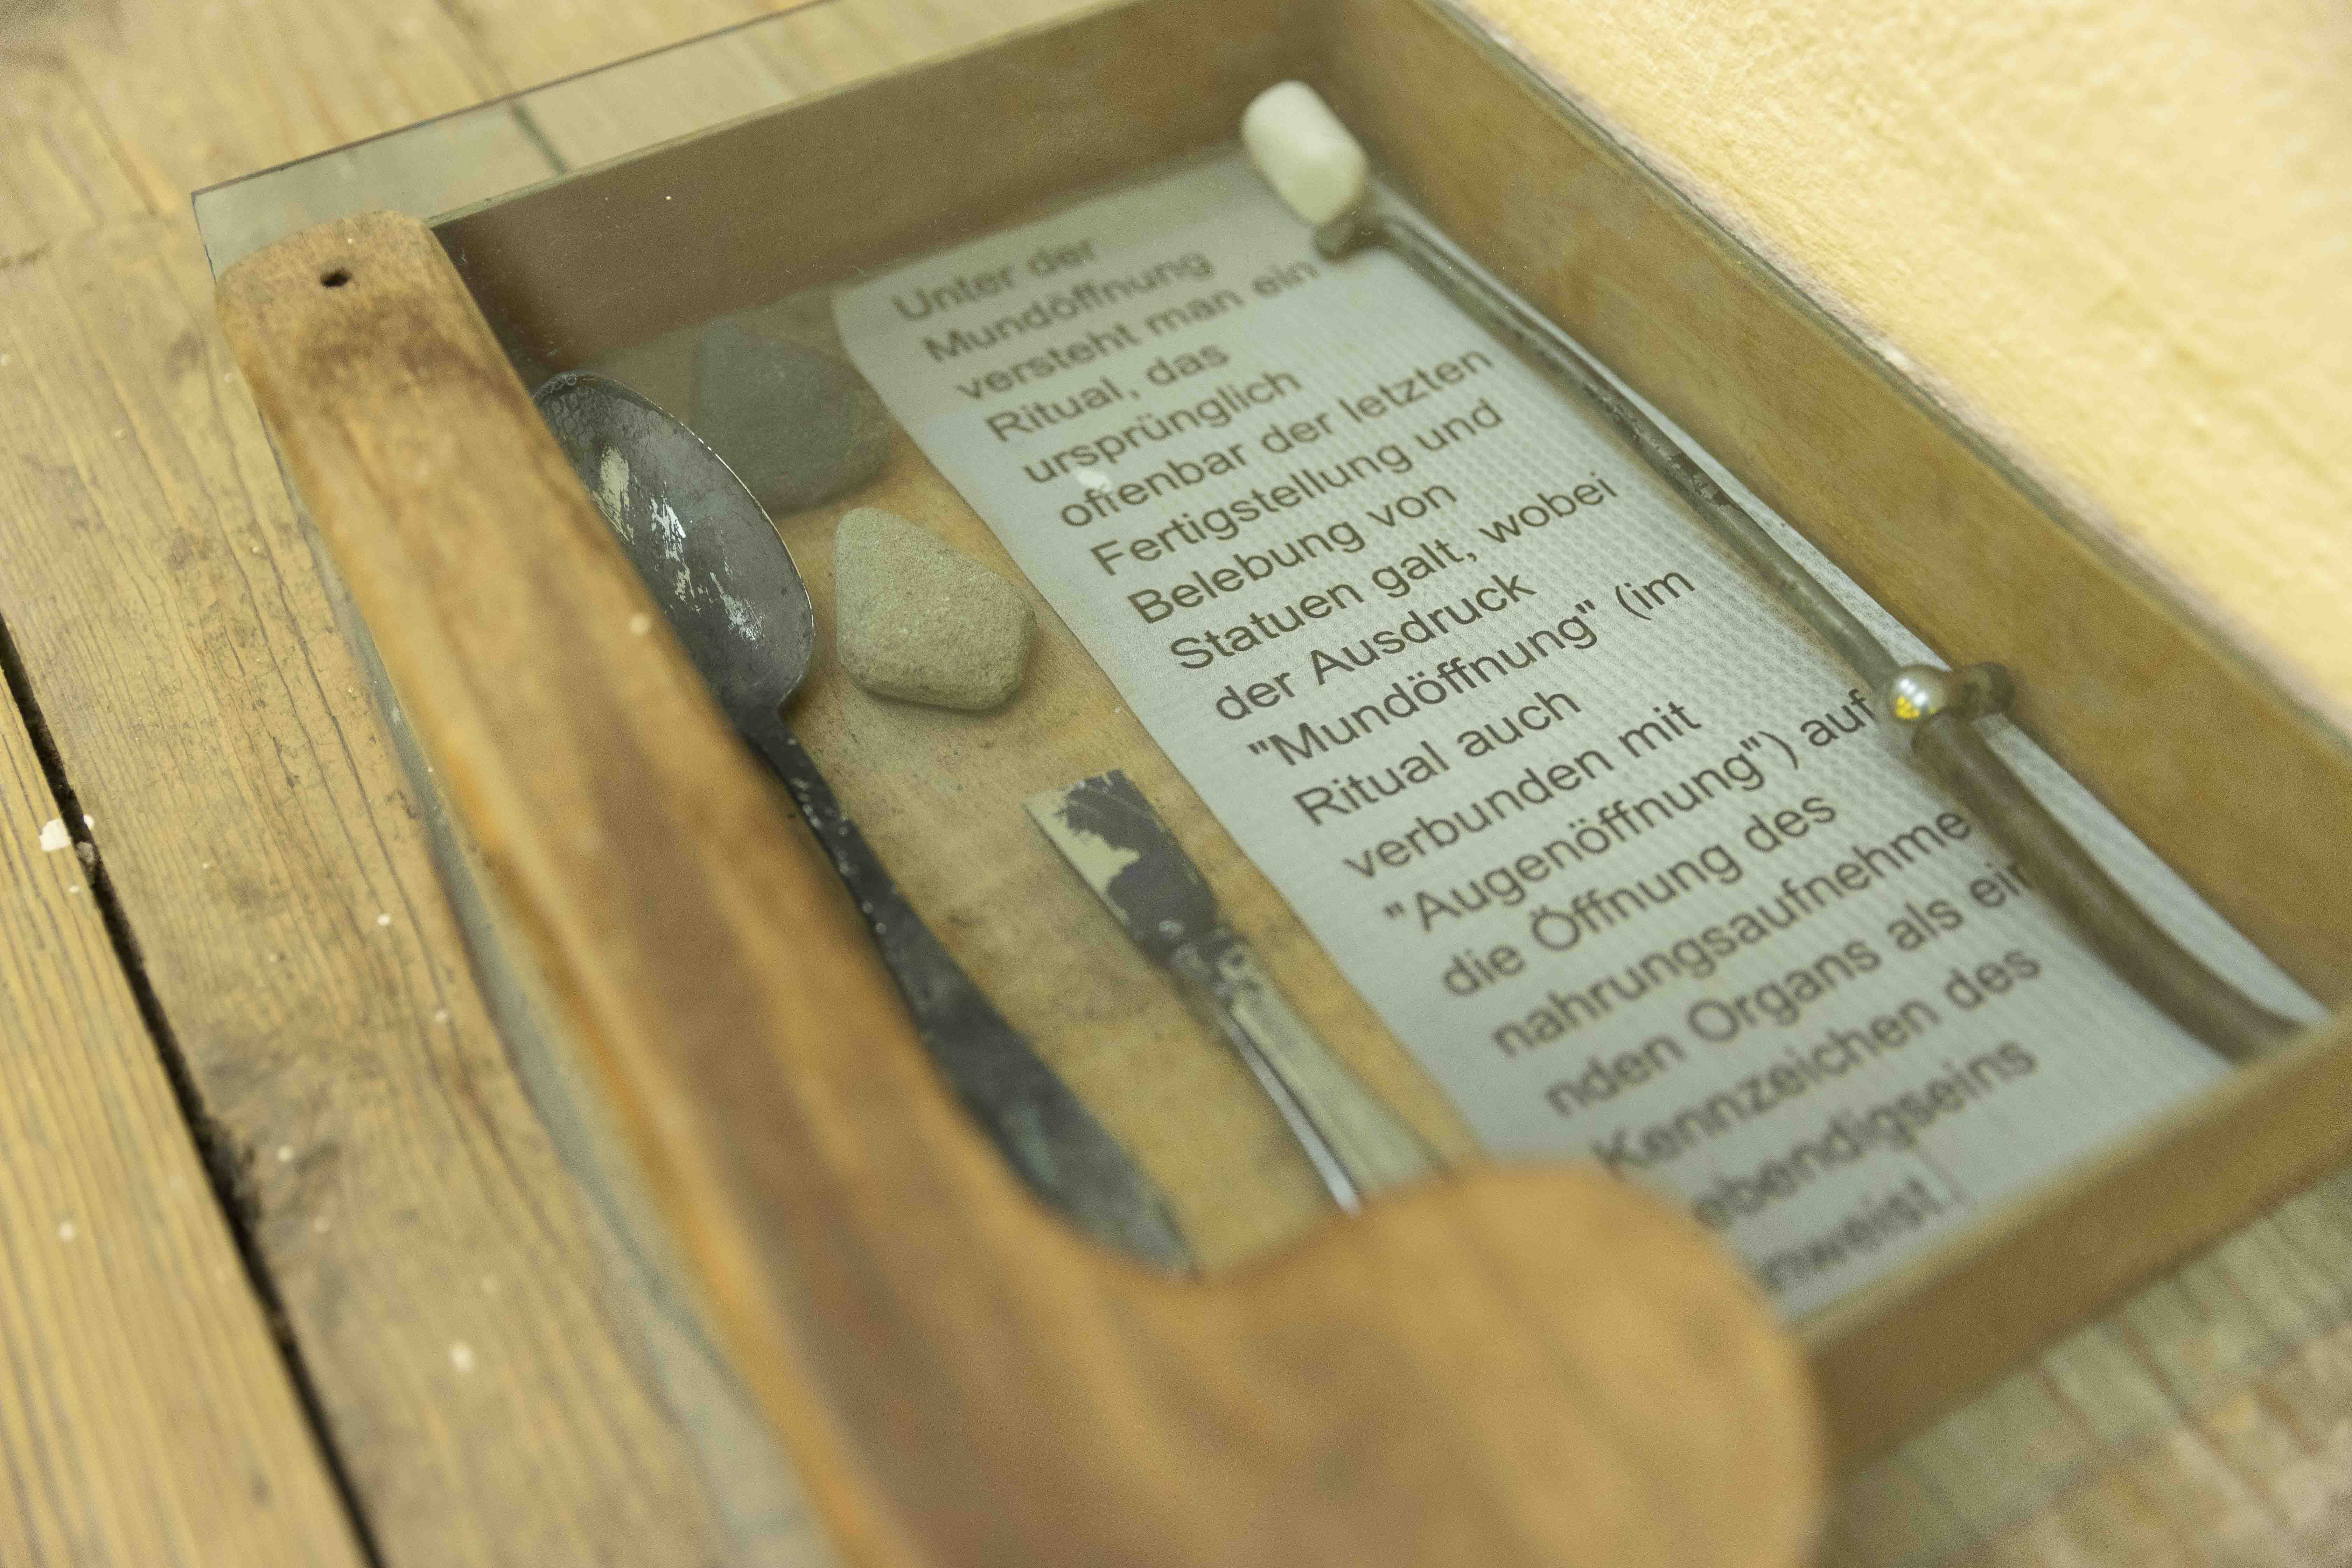 Unter der
Mundöffnung
versteht man ein
Ritual, das
ursprünglich
offenbar der letzten
Fertigstellung und
Belebung von
Statuen galt, wobei
der Ausdruck
"Mundöffnung" (im
Ritual auch
verbunden mit
"Augenöffnung") auf
die Öffnung des
nahrungsaufnehme
nden Organs als ein
Kennzeichen des
ebendigseins
nweist.